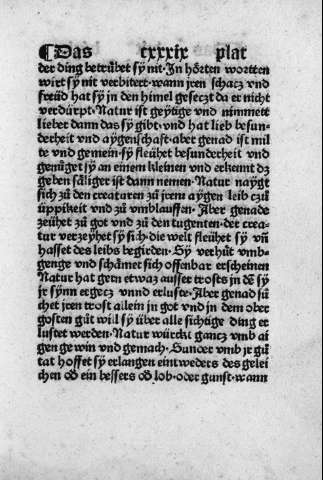 ¶ Das cxxxix plat
der ding betrübet sÿ nit. In hörten wortten
wirt sÿ nit verbitert. wann jren schacz vnd
freüd hat sÿ in den himel geseczt da er nicht
verdürpt. Natur ist geÿtige vnd nimmett
lieber dann das sÿ gibt. vnd hat lieb besun-
derheit vnd aÿgenschaft. aber genad ist mil
te vnd gemein. sÿ fleühet besunderheit vnd
genüget sÿ an einem kleinen vnd erkennt dz
geben säliger ist dann nemen. Natur naÿgt
sich zů den creaturen zů jrem aÿgen leib czů
üppikeit vnd zů vmblauffen. Aber genade
zeühet zů got vnd zů den tugenten. der crea-
tur verzeÿhet sÿ sich. die welt fleühet sÿ vñ
hasset des leibs begirden. Sÿ verhüt vmb-
genge vnd schämet sich offenbar erscheinen
Natur hat gern etwaz ausser trosts in dẽ sÿ
jr sÿnn ergecz vnnd erluste. Aber genad sů
chet jren trost allein in got vnd in dem ober
gosten gůt will sÿ über alle sichtige ding er
lustet werden. Natur würckt gancz vmb ai
gen gewin vnd gemach. Sunder vmb jr gů
tat hoffet sÿ erlangen eintweders des gelei
chen oď ein bessers oď lob. oder gunst. wann